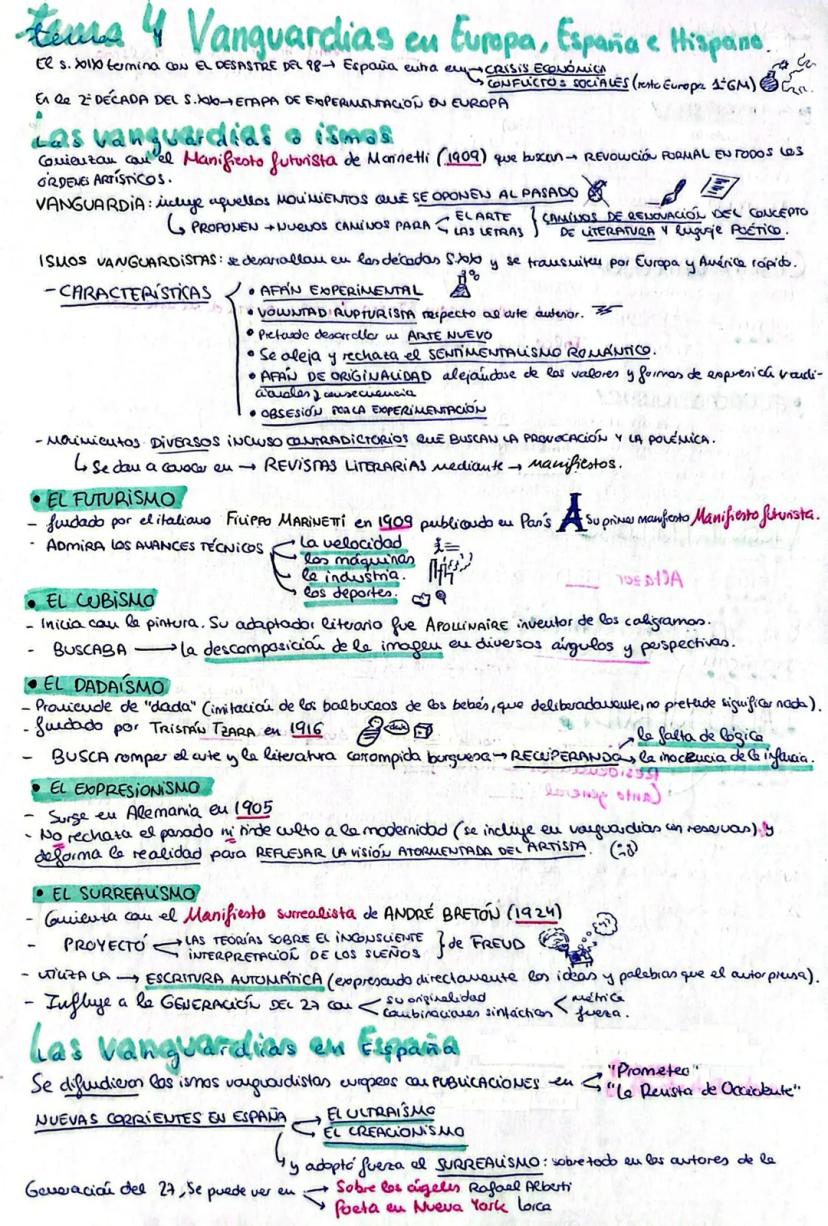 tema 4 Vanguardias en Europa, España e Hispano.
El s. XIX termina con EL DESASTRE DEL 98 → España entra en → CRISIS ECONÓMICA
→ CONFLICTOS SOCIALES (resto Europa 1ªGM)
En la 2ª DÉCADA DEL S.XX → ETAPA DE EXPERIMENTACIÓN EN EUROPA
Las vanguardias o ismos
Comienzan con el Manifiesto futurista de Marinetti (1909) que buscan → REVOLUCIÓN FORMAL EN TODOS LOS
ÓRDENES ARTÍSTICOS.
VANGUARDIA: incluye aquellos MOVIMIENTOS QUE SE OPONEN AL PASADO
↳ PROPONEN → NUEVOS CAMINOS PARA < EL ARTE / LAS LETRAS } CAMINOS DE RENOVACIÓN DEL CONCEPTO
DE LITERATURA Y lenguaje POÉTICO.
ISMOS VANGUARDISTAS: se desarrollan en las décadas S.XX y se transmiten por Europa y América rápido.
- CARACTERÍSTICAS
• AFÁN EXPERIMENTAL
• VOLUNTAD RUPTURISTA respecto al arte anterior.
• Pretende desarrollar un ARTE NUEVO
• Se aleja y rechaza el SENTIMENTALISMO ROMÁNTICO.
• AFÁN DE ORIGINALIDAD alejándose de los valores y formas de expresión tradi-
cionales y consecuencia
• OBSESIÓN POR LA EXPERIMENTACIÓN
- Movimientos DIVERSOS INCLUSO CONTRADICTORIOS QUE BUSCAN LA PROVOCACIÓN Y LA POLÉMICA.
↳ Se dan a conocer en → REVISTAS LITERARIAS mediante → manifiestos.
• EL FUTURISMO
- fundado por el italiano FILIPPO MARINETTI en 1909 publicando en París su primer manifiesto Manifiesto futurista.
- ADMIRA LOS AVANCES TÉCNICOS
la velocidad
las máquinas
la industria.
los deportes.
Altazor
• EL CUBISMO
- Inicia con la pintura. Su adaptador literario fue APOLLINAIRE inventor de los caligramas.
- BUSCABA → la descomposición de la imagen en diversos ángulos y perspectivas.
• EL DADAÍSMO
- Proviende de "dada" (imitación de los balbuceos de los bebés, que deliberadamente, no pretende significar nada).
- fundado por TRISTÁN TZARA en 1916
la falta de lógica
- BUSCA romper el arte y la literatura corrompida burguesa → RECUPERANDO → la inocencia de la infancia.
Residencia
• EL EXPRESIONISMO
Canto general
- Surge en Alemania en 1905
- No rechaza el pasado ni rinde culto a la modernidad (se incluye en vanguardias con reservas) y
deforma la realidad para REFLEJAR LA VISIÓN ATORMENTADA DEL ARTISTA.
• EL SURREALISMO
- Comienza con el Manifiesto surrealista de ANDRÉ BRETÓN (1924)
- PROYECTÓ < LAS TEORÍAS SOBRE EL INCONSCIENTE / INTERPRETACIÓN DE LOS SUEÑOS } de FREUD
- UTILIZA LA → ESCRITURA AUTOMÁTICA (expresando directamente las ideas y palabras que el autor piensa).
- Influye a la GENERACIÓN DEL 27 con < su originalidad / combinaciones sintácticas < métrica / fuerza.
Las vanguardias en España
Se difundieron los ismos vanguardistas europeos con PUBLICACIONES en → "Prometeo"
→ "La Revista de Occidente"
NUEVAS CORRIENTES EN ESPAÑA → EL ULTRAÍSMO
→ EL CREACIONISMO
↳ y adoptó fuerza el SURREALISMO: sobre todo en los autores de la
Generación del 27, se puede ver en → Sobre los ángeles Rafael Alberti
→ Poeta en Nueva York Lorca